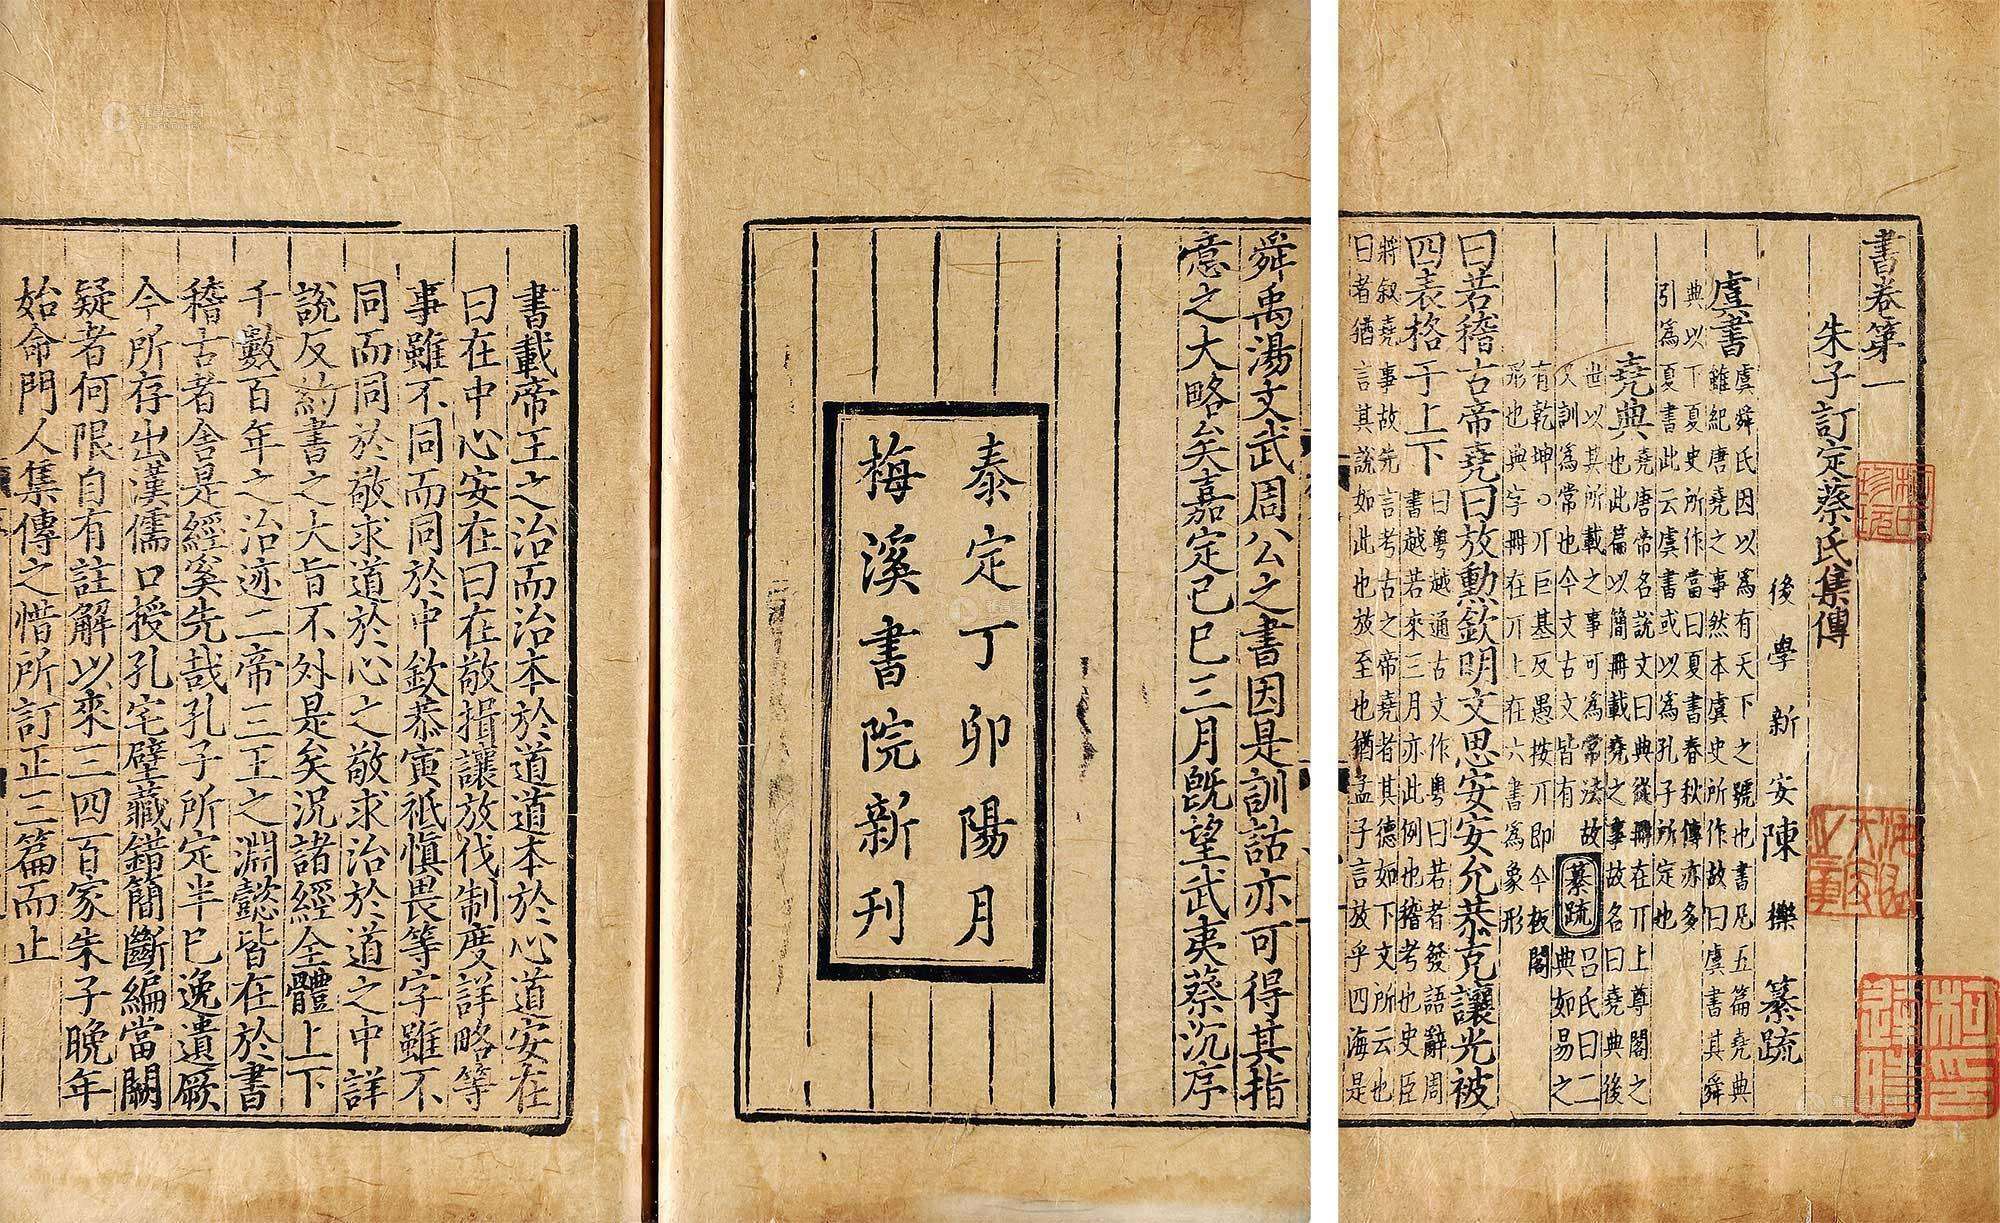 書卷第一
朱子訂定蔡氏集傳
後學新安陳櫟纂疏
虞書虞舜氏因以為有天下之號也書凡五篇堯典
雖紀唐堯之事然本虞史所作故曰虞書其舜
典以下夏史所作當曰夏書春秋傳亦多
引為夏書此云虞書或以為孔子所定也
堯典堯唐帝名說文曰典從冊在丌上尊閣之
也此篇以簡冊載堯之事故名曰堯典後
世以其所載之事可為常法故
又訓為常也今文古文皆有
纂疏
呂氏曰二
典如易之
有乾坤○丌巨基反愚按丌即今板閣
形也典字冊在丌上在六書為象形
曰若稽古帝堯曰放勳欽明文思安安允恭克讓光被
四表格于上下曰粵越通古文作粵曰若者發語辭周
書越若來三月亦此例也稽考也史臣
將叙堯事故先言考古之帝堯者其德如下文所云也
曰者猶言其說如此也放至也猶孟子言放乎四海是
舜禹湯文武周公之書因是訓詁亦可得其指
意之大略矣嘉定己巳三月既望武夷蔡沉序
泰定丁卯陽月
梅溪書院新刊
書載帝王之治而治本於道道本於心道安在
曰在中心安在曰在敬揖讓放伐制度詳略等
事雖不同而同於中欽恭寅祗愼畏等字雖不
同而同於敬求道於心之敬求治於道之中詳
說反約書之大旨不外是矣況諸經全體上下
千數百年之治迹二帝三王之淵懿皆在於書
稽古者舍是經奚先哉孔子所定半已逸遺厥
今所存出漢儒口授孔宅壁藏錯簡斷編當闕
疑者何限自有註解以來三四百家朱子晚年
始命門人集傳之惜所訂正三篇而止